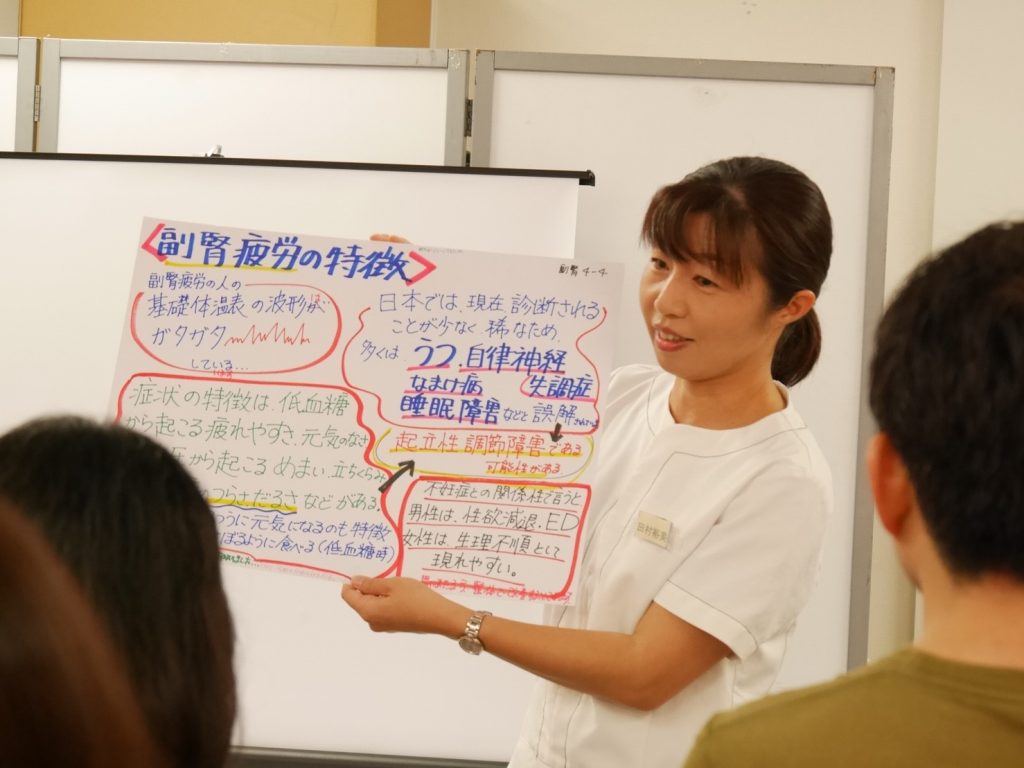 副腎疲労の特徴
副腎4-4
副腎疲労の人の
基礎体温表の波形が
ガタガタ
している…
日本では、現在診断される
ことが少なく稀なため、
多くは、うつ、自律神経
なまけ病 失調症
睡眠障害などと誤解
起立性調節障害である
可能性がある
症状の特徴は、低血糖
から起こる疲れやすさ、元気のなさ
から起こるめまい、立ちくらみ
つらさだるさなどがある。
うに元気になるのも特徴
ぼるように食べる(低血糖時)
不妊症との関係性で言うと
男性は、性欲減退、ED
女性は、生理不順として
現れやすい。
田村